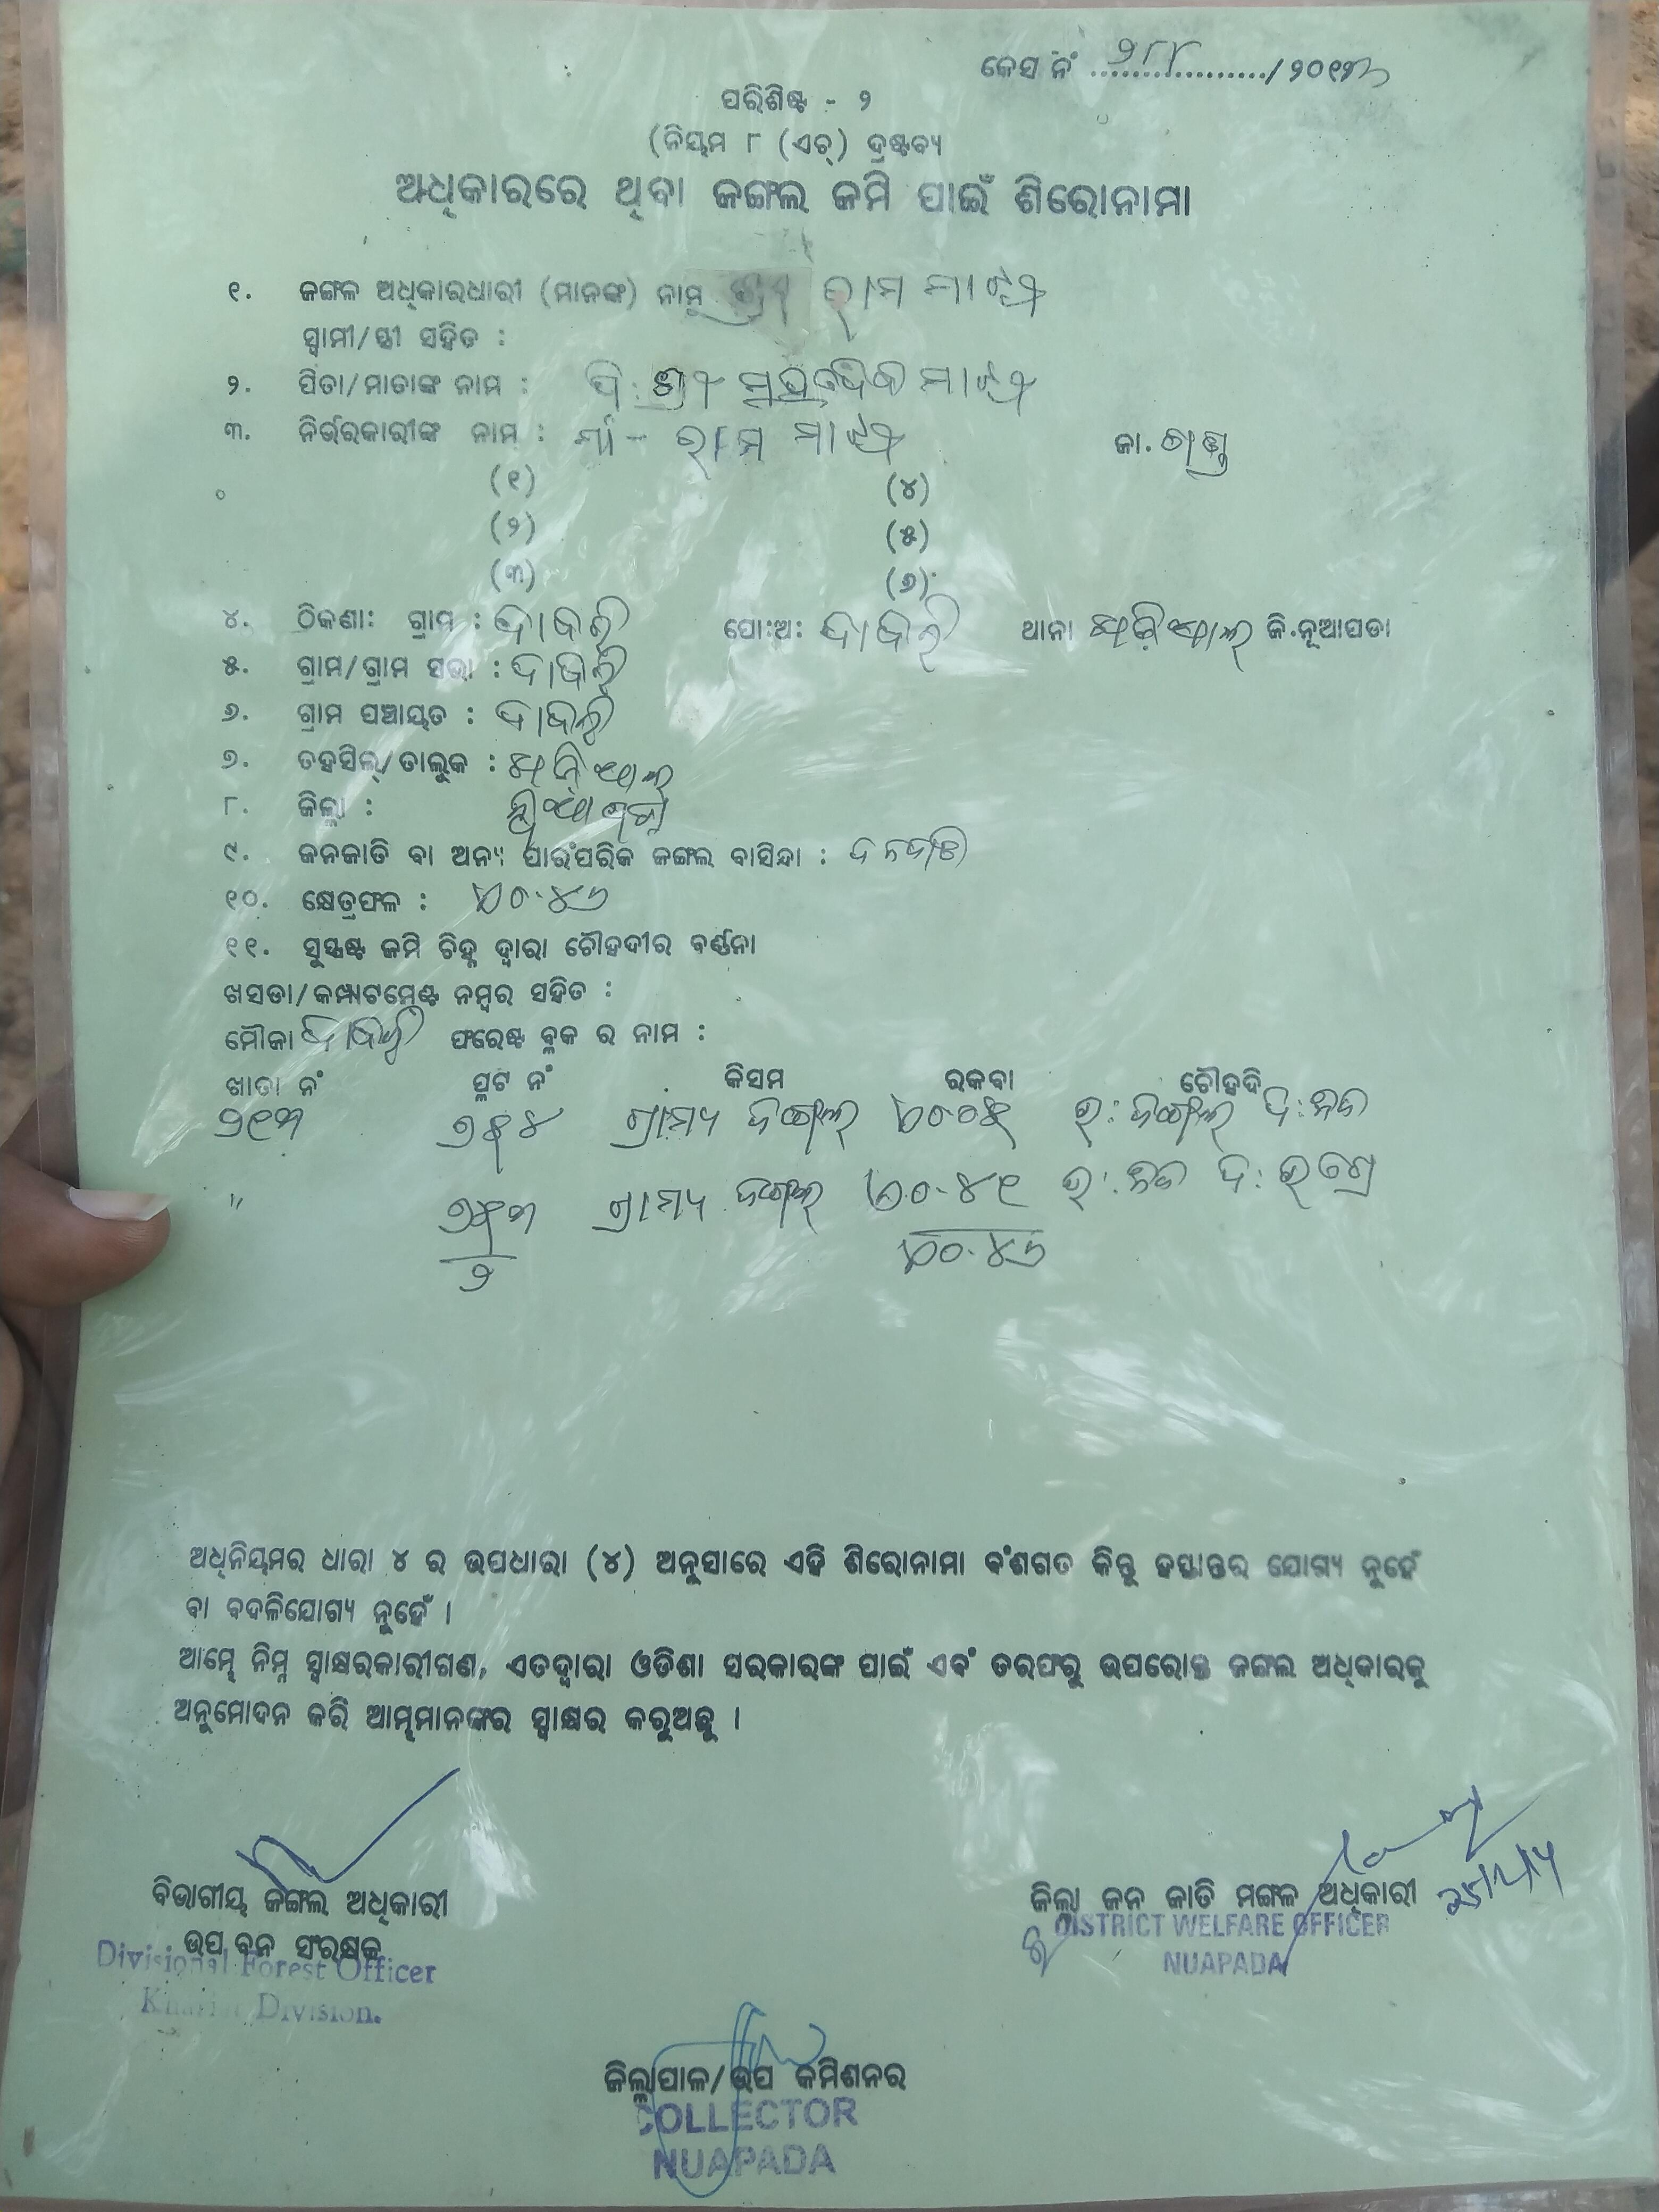 କେସ ନଂ ୨୮୪ /୨୦୧୩
ପରିଶିଷ୍ଟ - ୨
(ନିୟମ ୮ (ଏଚ୍) ଦ୍ରଷ୍ଟବ୍ୟ
ଅଧିକାରରେ ଥିବା ଜଙ୍ଗଲ ଜମି ପାଇଁ ଶିରୋନାମା
୧. ଜଙ୍ଗଲ ଅଧିକାରଧାରୀ (ମାନଙ୍କ) ନାମ ରାମ ମାଝୀ
ସ୍ୱାମୀ/ସ୍ତ୍ରୀ ସହିତ :
୨. ପିତା/ମାତାଙ୍କ ନାମ : ପି: ମାଝୀ
୩. ନିର୍ଭରକାରୀଙ୍କ ନାମ : ରାମ ମାଝୀ ଜା. ଗଣ୍ଡ
(୧) (୪)
(୨) (୫)
(୩) (୬)
୪. ଠିକଣା: ଗ୍ରାମ : ପୋ:ଅ: ଥାନା ଖରିଆର୍ ଜି.ନୂଆପଡା
୫. ଗ୍ରାମ/ଗ୍ରାମ ସଭା :
୬. ଗ୍ରାମ ପଞ୍ଚାୟତ :
୭. ତହସିଲ୍/ତାଲୁକ : ଖରିଆର
୮. ଜିଲ୍ଲା : ନୂଆପଡା
୯. ଜନଜାତି ବା ଅନ୍ୟ ପାରଂପରିକ ଜଙ୍ଗଲ ବାସିନ୍ଦା : ଜନଜାତି
୧୦. କ୍ଷେତ୍ରଫଳ : ୦.୪୬
୧୧. ସୁସ୍ପଷ୍ଟ ଜମି ଚିହ୍ନ ଦ୍ୱାରା ଚୌହଦୀର ବର୍ଣ୍ଣନା
ଖସଡା/କମ୍ପାଟମେଣ୍ଟ ନମ୍ବର ସହିତ :
ମୌଜା ଫରେଷ୍ଟ ବ୍ଳକ ର ନାମ :
ଖାତା ନଂ ପ୍ଲଟ ନଂ କିସମ ରକବା ଚୌହଦି
୨୧୩ ୭୫୪ ଗ୍ରାମ୍ୟ ଜଙ୍ଗଲ ୦.୦୫ ଉ: ଜଙ୍ଗଲ ଦ: ନିଜ
" ୭୫୩/୨ ଗ୍ରାମ୍ୟ ଜଙ୍ଗଲ ୦.୪୧ ଉ: ନିଜ ଦ:
୦.୪୬
ଅଧିନିୟମର ଧାରା ୪ ର ଉପଧାରା (୪) ଅନୁସାରେ ଏହି ଶିରୋନାମା ବଂଶଗତ କିନ୍ତୁ ହସ୍ତାନ୍ତର ଯୋଗ୍ୟ ନୁହେଁ
ବା ବଦଳିଯୋଗ୍ୟ ନୁହେଁ ।
ଆମ୍ଭେ ନିମ୍ନ ସ୍ୱାକ୍ଷରକାରୀଗଣ, ଏତଦ୍ୱାରା ଓଡିଶା ସରକାରଙ୍କ ପାଇଁ ଏବଂ ତରଫରୁ ଉପରୋକ୍ତ ଜଙ୍ଗଲ ଅଧିକାରକୁ
ଅନୁମୋଦନ କରି ଆମ୍ଭମାନଙ୍କର ସ୍ୱାକ୍ଷର କରୁଅଛୁ ।
ବିଭାଗୀୟ ଜଙ୍ଗଲ ଅଧିକାରୀ ଜିଲ୍ଲା ଜନ ଜାତି ମଙ୍ଗଳ ଅଧିକାରୀ
ଉପ ବନ ସଂରକ୍ଷକ DISTRICT WELFARE OFFICER
Divisional Forest Officer NUAPADA
Khariar Division.
ଜିଲ୍ଲାପାଳ/ଉପ କମିଶନର
COLLECTOR
NUAPADA